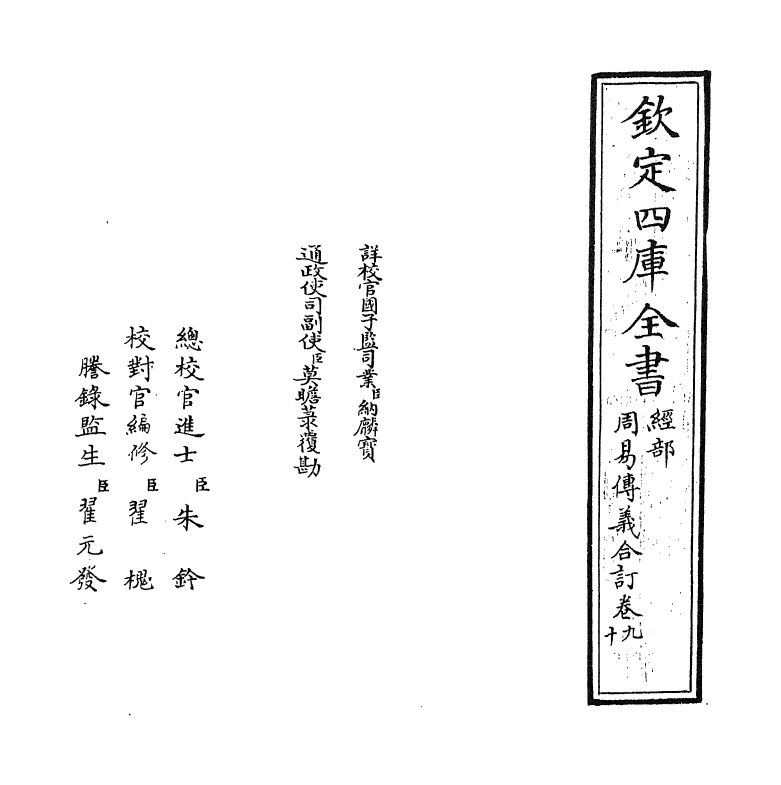 欽定四庫全書
經部
周易傳義合訂卷九
十
詳校官國子監司業臣納麟寶
通政使司副使臣莫瞻菉覆勘
總校官進士臣朱鈐
校對官編修臣翟槐
謄錄監生臣翟元發